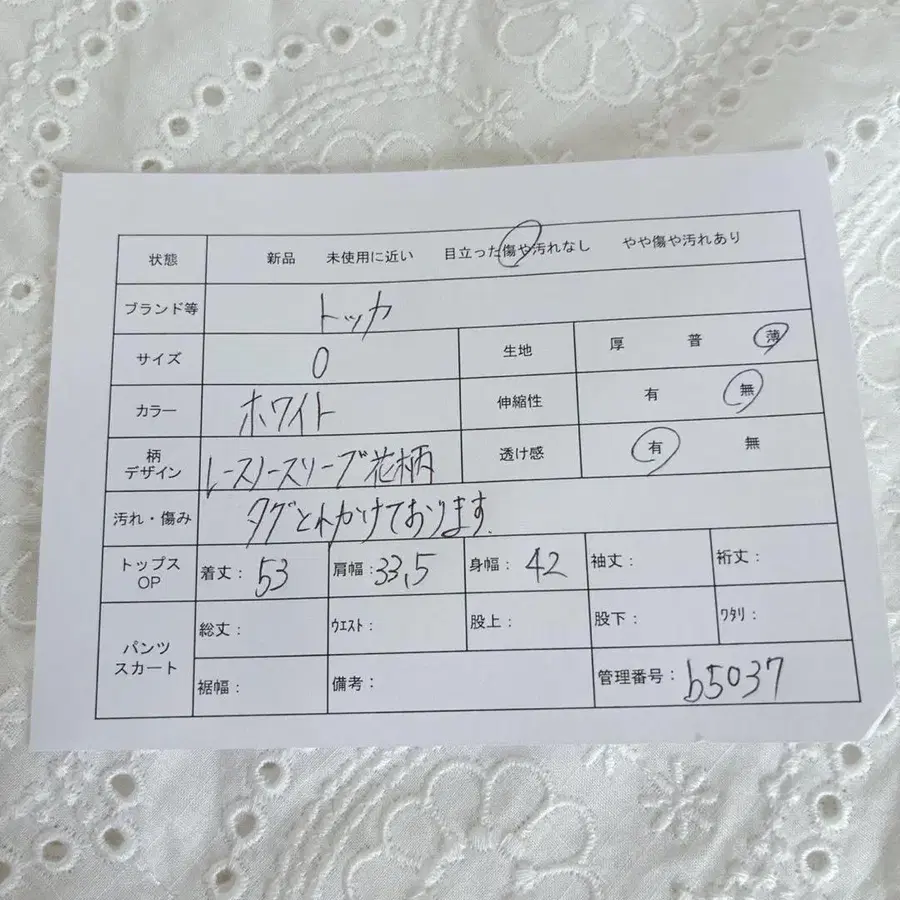 状態 新品 未使用に近い 目立った傷や汚れなし やや傷や汚れあり
ブランド等 トッカ
サイズ 0 生地 厚 普 薄
カラー ホワイト 伸縮性 有 無
柄
デザイン レースノースリーブ花柄 透け感 有 無
汚れ・傷み タグとれかけております.
トップス
OP 着丈: 53 肩幅: 33,5 身幅: 42 袖丈: 裄丈:
パンツ
スカート 総丈: ウエスト: 股上: 股下: ワタリ:
裾幅: 備考: 管理番号: b5037